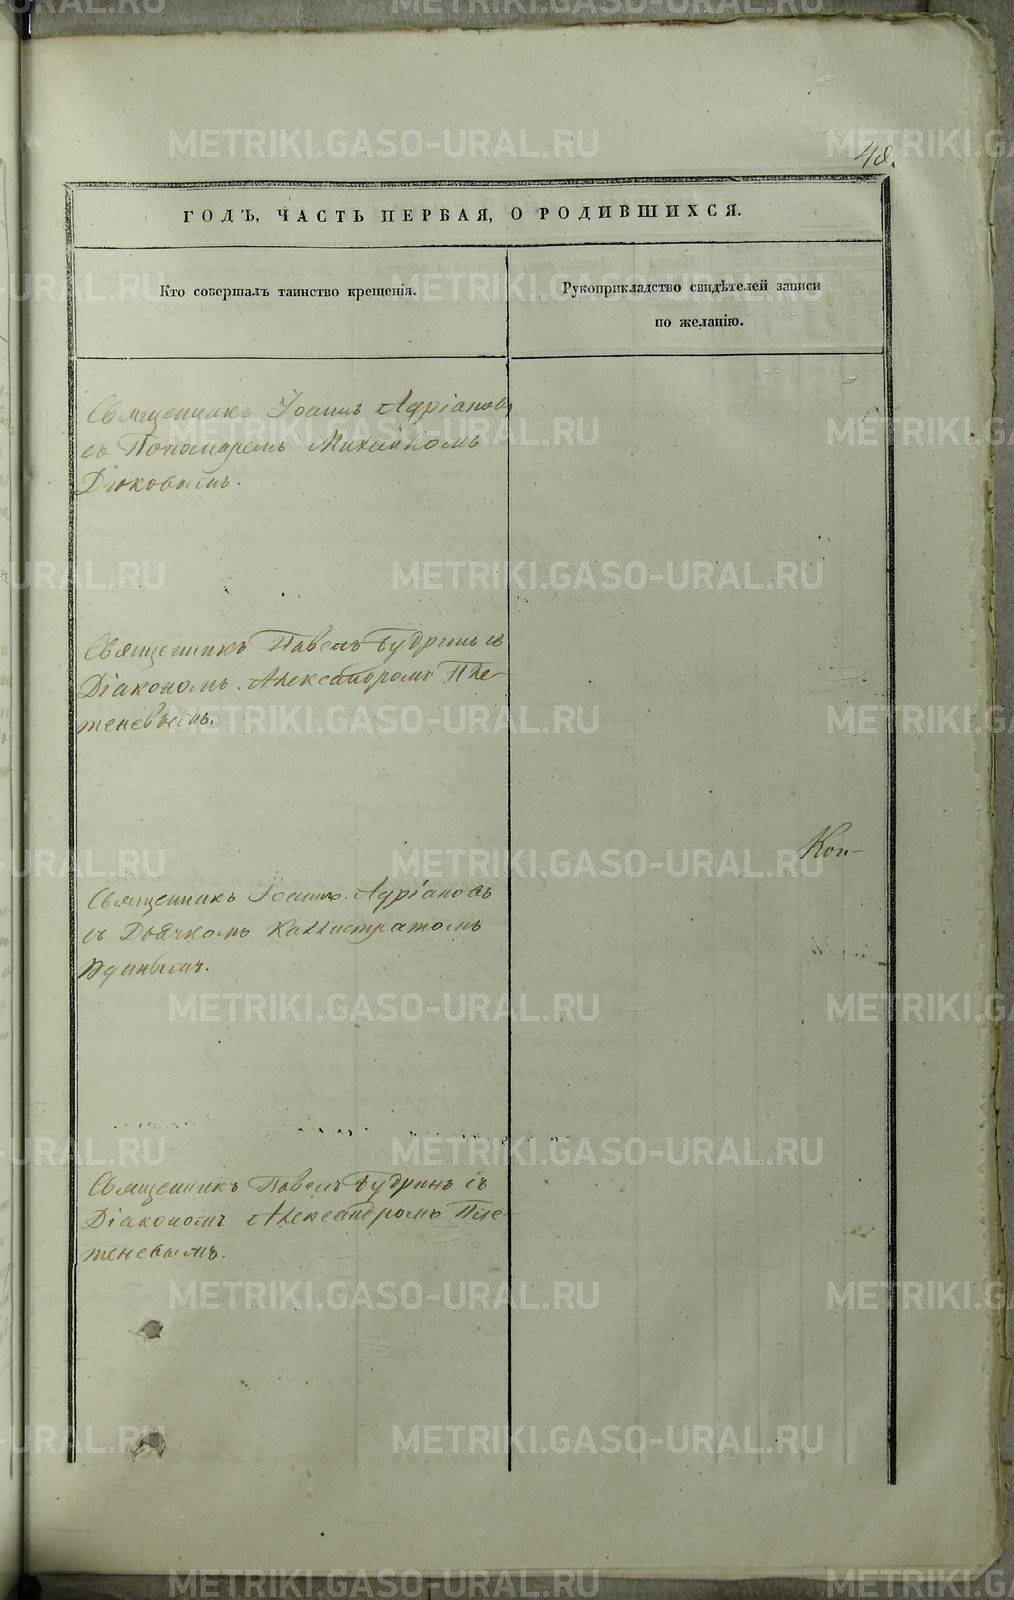 48.
ГОДЪ, ЧАСТЬ ПЕРВАЯ, О РОДИВШИХСЯ.
Кто совершалъ таинство крещенія.
Рукоприкладство свидѣтелей записи
по желанію.
Священникъ Іоаннъ Адріановъ
съ Пономаремъ Михаиломъ
Дюковымъ.
Священникъ Павелъ Будринъ съ
Діакономъ Александромъ Пле-
теневымъ.
Кон-
Священникъ Іоаннъ Адріановъ
съ Дьячкомъ Каллистратомъ
Священникъ Павелъ Будринъ съ
Діакономъ Александромъ Пле-
теневымъ.
METRIKI.GASO-URAL.RU